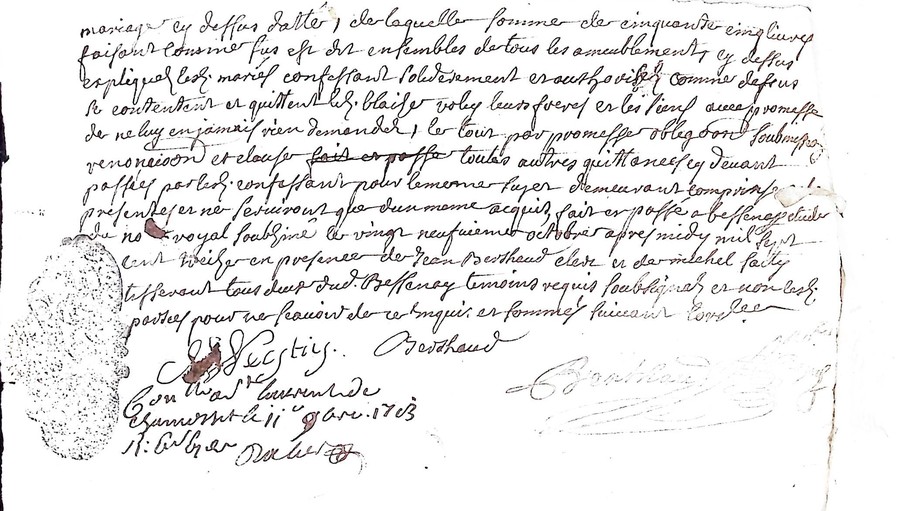 mariage cy dessus datté, de laquelle somme de cinquante cinq livres
faisant comme sus est dit ensembles de tous les ameublement, cy dessus
expliques lesd. mariés confessant solidairement et authorisée comme dessus
se contentent et quittent led. blaise leurs freres et les siens avec promesse
de ne luy en jamais rien demander, le tout par promesse obligaon soubmissions
renonciaon et clause fait et passé toutes autres quittances cy devant
passées par lesd. confessant pour le meme sujet demeurant comprinse
présentes et ne serviront que d'un meme acquit, fait et passé a bessenay étude
du no.re royal soubsiné le vingt neufuieme octobre apres midy mil sept
cent treize en presence de Jean Berthaud clerc et de michel
tisserant tous deux dud. Bessenay temoins requis soubsignés et non lesd.
parties pour ne scavoir de ce enquis et sommés suivant lordce
Berthaud
Con
chamosset le 11e 9bre. 1713